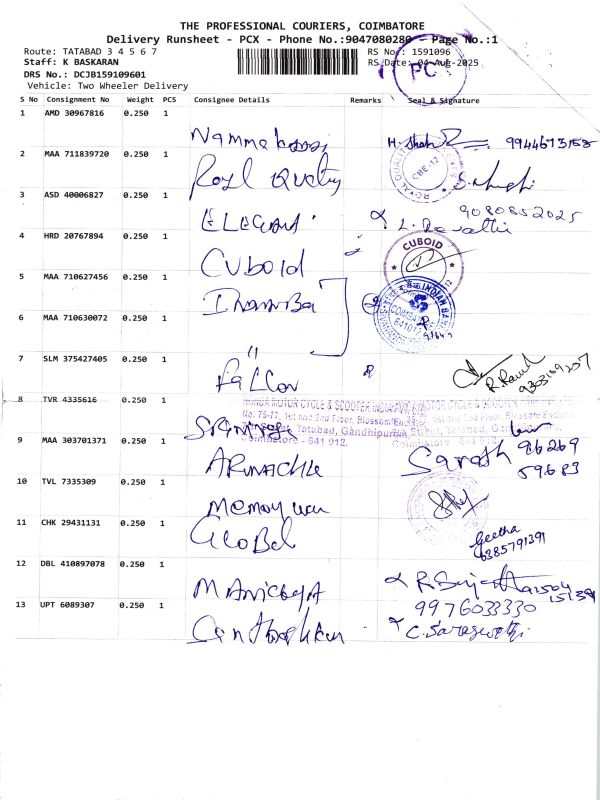 THE PROFESSIONAL COURIERS, COIMBATORE
Delivery Runsheet - PCX - Phone No.:9047080280 - Page No.:1
Route: TATABAD 3 4 5 6 7
RS No: 1591096
Staff: K BASKARAN
RS Date: 04-Aug-2025
PC
DRS No.: DCJB159109601
Vehicle: Two Wheeler Delivery
S No Consignment No Weight PCS Consignee Details Remarks Seal & Signature
1 AMD 30967816 0.250 1
H. Shah
2 MAA 711839720 0.250 1
Royal Quality
CBE-12
3 ASD 40006827 0.250 1
ELEGANT
9080852025
L. Revathi
4 HRD 20767894 0.250 1
CUBOID
CUBOID
5 MAA 710627456 0.250 1
INDIAN BANK
6 MAA 710630072 0.250 1
"
7 SLM 375427405 0.250 1
Falcon
8 TVR 4335616 0.250 1
HONDA MOTOR CYCLE & SCOOTER INDIA
No. 75-77, 1st and 2nd Floor, Blossom
Tatabad, Gandhipuram
Coimbatore - 641 012.
9 MAA 303701371 0.250 1
Sarath 96269
59683
10 TVL 7335309 0.250 1
11 CHK 29431131 0.250 1
Global
Geetha
6385791391
12 DBL 410897078 0.250 1
13 UPT 6089307 0.250 1
9976033330
C. Saraswathi